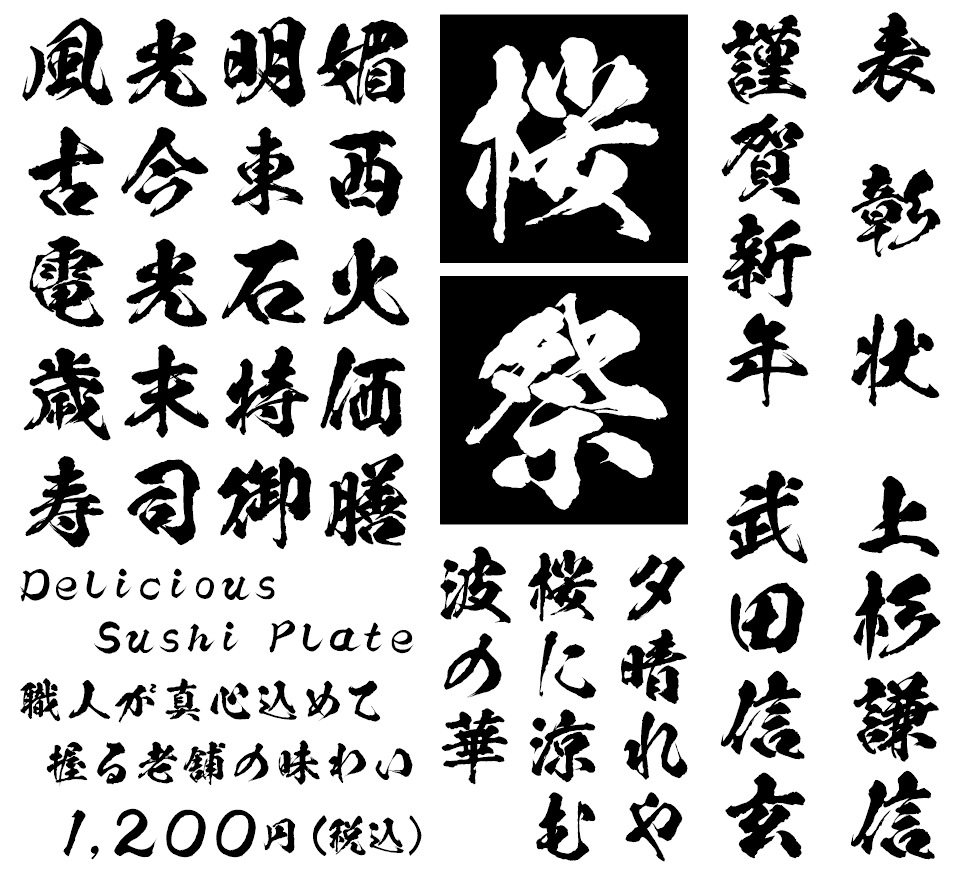 風光明媚
古今東西
電光石火
歳末特価
寿司御膳
Delicious
Sushi Plate
職人が真心込めて
握る老舗の味わい
1,200円(税込)
桜
祭
夕晴れや
桜に涼む
波の華
表彰状
謹賀新年
上杉謙信
武田信玄